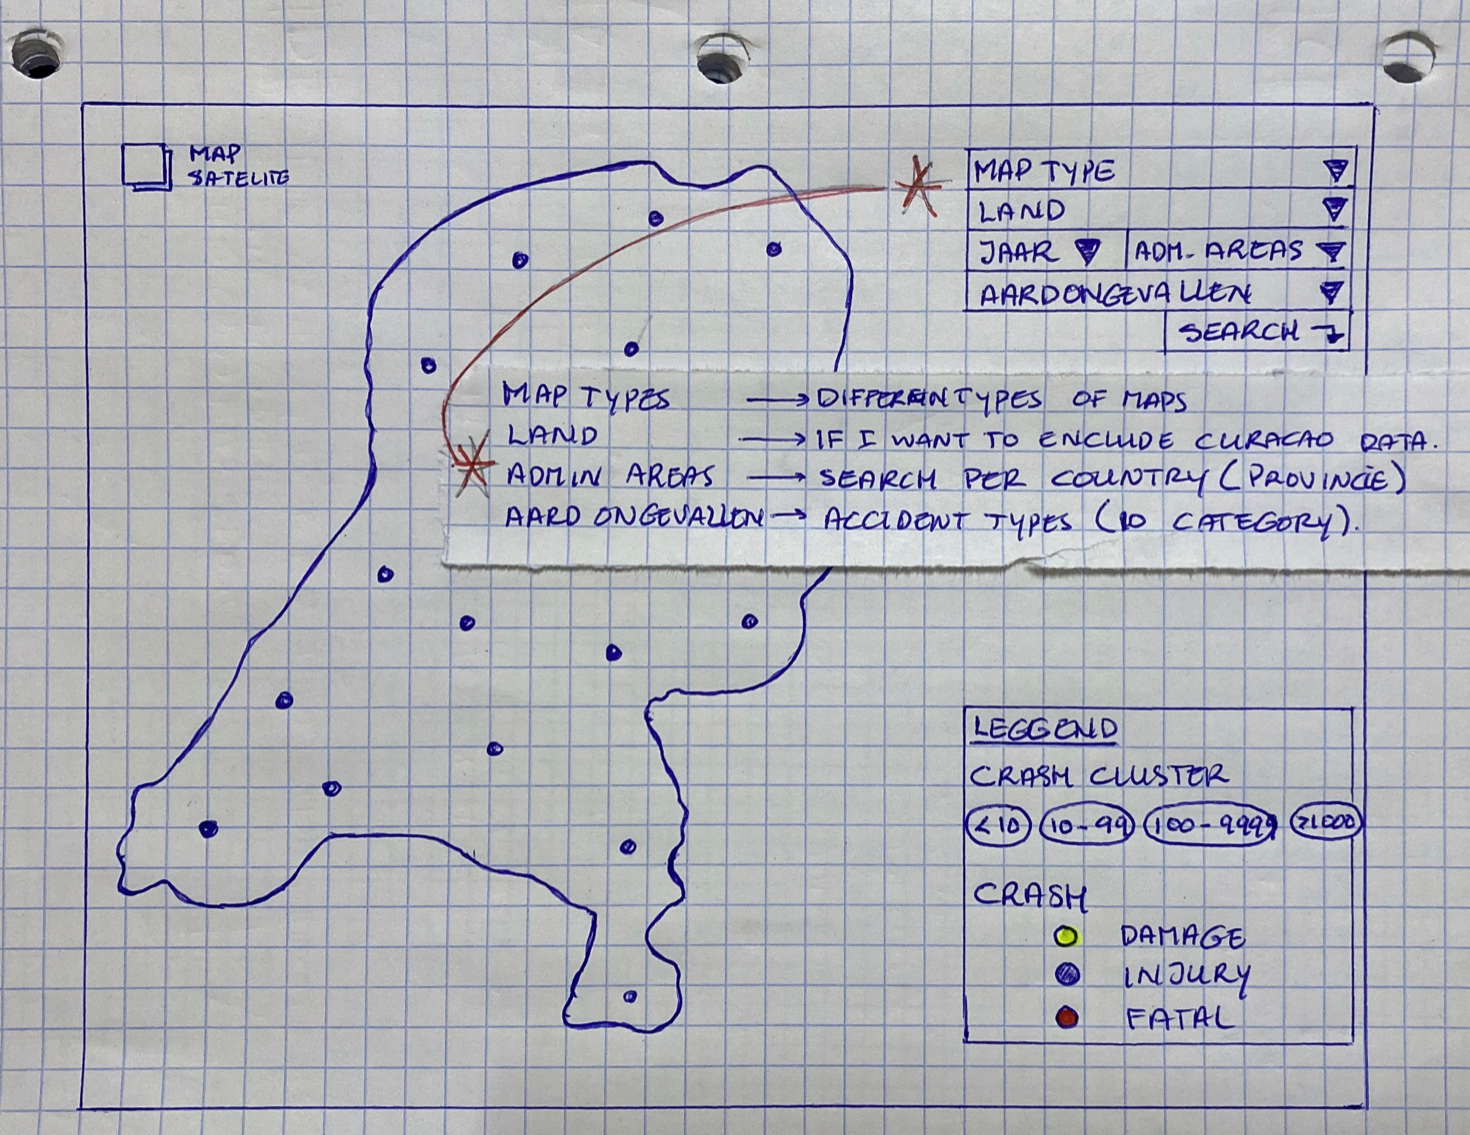 MAP
SATELITE
MAP TYPE
LAND
JAAR ADM. AREAS
AARD ONGEVALLEN
SEARCH
MAP TYPES → DIFFEREN TYPES OF MAPS
LAND → IF I WANT TO ENCLUDE CURACAO DATA.
ADMIN AREAS → SEARCH PER COUNTRY (PROVINCIE)
AARD ONGEVALLEN → ACCIDENT TYPES (10 CATEGORY).
LEGGEND
CRASH CLUSTER
<10 10-99 100-9999 >1000
CRASH
DAMAGE
INJURY
FATAL